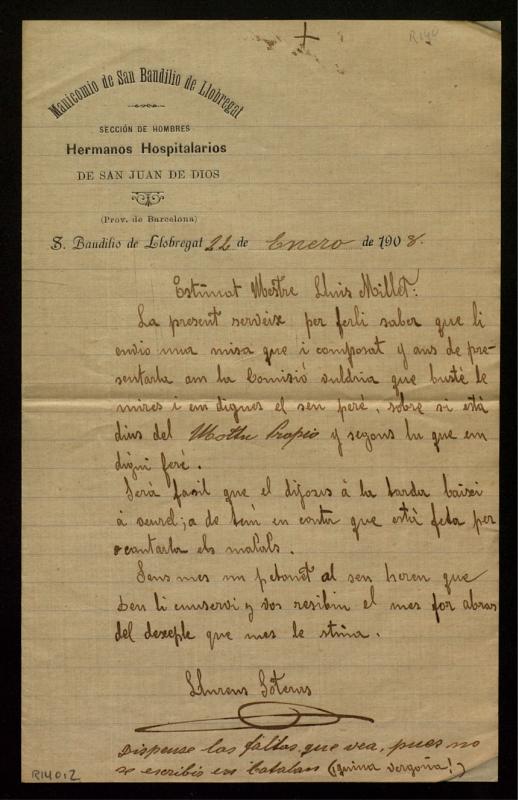 R140
Manicomio de San Baudilio de Llobregat
SECCIÓN DE HOMBRES
Hermanos Hospitalarios
DE SAN JUAN DE DIOS
(Prov. de Barcelona)
S. Baudilio de Llobregat 22 de Enero de 1908.
Estimat Mestre Lluis Millet:
La present serveix per ferli saber que li
envio una misa que i composat y ans de pre-
sentarla am la Comisió vuldria que busté le
mires i em digues el seu peré, sobre si está
dins del Mothu Propio y segons lu que em
digui feré.
Será fasil que el dijous á la tarda baixi
á veurel; a de tení en conta que está feta per
cantarla els malals.
Sens mes un petonet al seu hereu que
Deu li cunservi y vos resibin el mes for abras
del dexeple que mes le stima.
Llurens Soteras
Dispense las faltas que vea, pues no
se escribir en Catalan (¡quina vergoña!)
R140,2